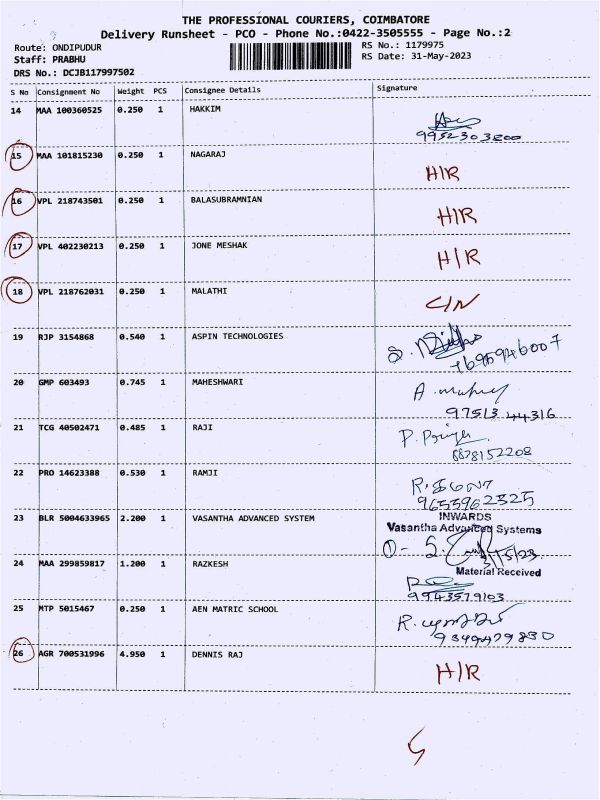 THE PROFESSIONAL COURIERS, COIMBATORE
Delivery Runsheet - PCO - Phone No.:0422-3505555 - Page No.:2
Route: ONDIPUDUR
Staff: PRABHU
DRS No.: DCJB117997502
RS No.: 1179975
RS Date: 31-May-2023
S No Consignment No Weight PCS Consignee Details Signature
14 MAA 100360525 0.250 1 HAKKIM
9952303800
15 MAA 101815230 0.250 1 NAGARAJ H/R
16 VPL 218743501 0.250 1 BALASUBRAMNIAN H/R
17 VPL 402230213 0.250 1 JONE MESHAK H/R
18 VPL 218762031 0.250 1 MALATHI C/N
19 RJP 3154868 0.540 1 ASPIN TECHNOLOGIES
7695946007
20 GMP 603493 0.745 1 MAHESHWARI
97513 44316
21 TCG 40502471 0.485 1 RAJI
8828152208
22 PRO 14623388 0.530 1 RAMJI
9655962325
23 BLR 5004633965 2.200 1 VASANTHA ADVANCED SYSTEM INWARDS
Vasantha Advanced Systems
24 MAA 299859817 1.200 1 RAZKESH
Material Received
9943579103
25 MTP 5015467 0.250 1 AEN MATRIC SCHOOL
26 AGR 700531996 4.950 1 DENNIS RAJ H/R
5